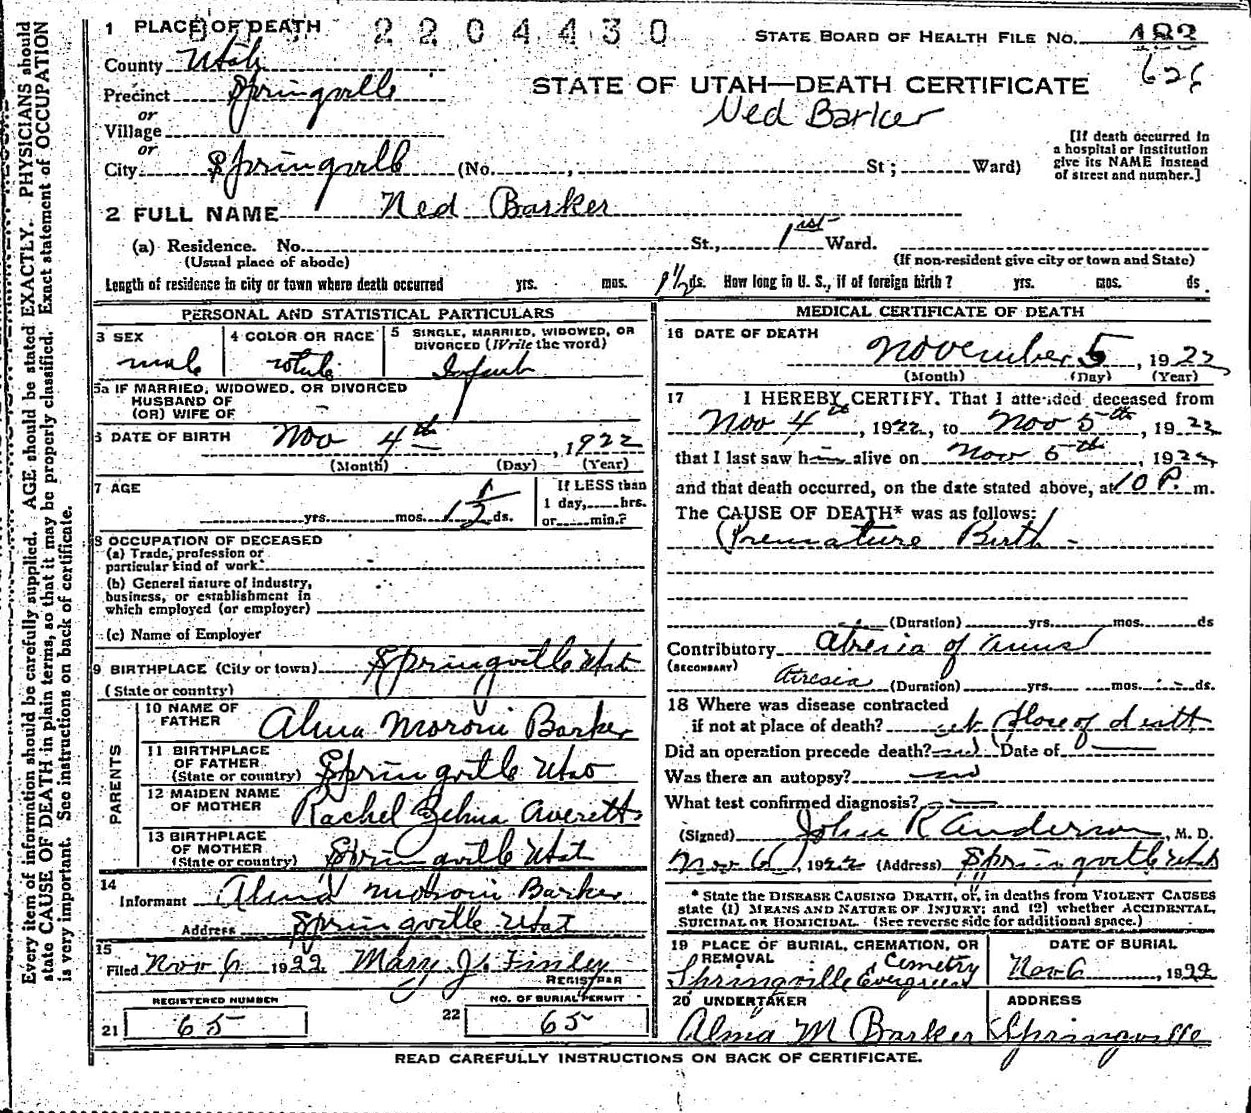 1 PLACE OF DEATH
2204430
STATE BOARD OF HEALTH FILE NO. 483
626
County Utah
Precinct Springville
or
Village
or
City Springville (No. , St ; Ward)
STATE OF UTAH—DEATH CERTIFICATE
Ned Barker
[If death occurred in
a hospital or institution
give its NAME instead
of street and number.]
2 FULL NAME Ned Barker
(a) Residence. No. St., 1st Ward.
(Usual place of abode) (If non-resident give city or town and State)
Length of residence in city or town where death occurred yrs. mos. 1 1/2 ds. How long in U. S., if of foreign birth ? yrs. mos. ds.
PERSONAL AND STATISTICAL PARTICULARS
3 SEX
male
4 COLOR OR RACE
white
5 SINGLE, MARRIED, WIDOWED, OR
DIVORCED (Write the word)
Infant
5a IF MARRIED, WIDOWED, OR DIVORCED
HUSBAND OF
(OR) WIFE OF
6 DATE OF BIRTH Nov 4th , 1922
(Month) (Day) (Year)
7 AGE
yrs. mos. 1 1/2 ds.
If LESS than
1 day, hrs.
or min.?
8 OCCUPATION OF DECEASED
(a) Trade, profession or
particular kind of work
(b) General nature of industry,
business, or establishment in
which employed (or employer)
(c) Name of Employer
9 BIRTHPLACE (City or town) Springville Utah
(State or country)
PARENTS
10 NAME OF
FATHER Alma Moroni Barker
11 BIRTHPLACE
OF FATHER
(State or country) Springville Utah
12 MAIDEN NAME
OF MOTHER Rachel Zelma Averett
13 BIRTHPLACE
OF MOTHER
(State or country) Springville Utah
14
Informant Alma Moroni Barker
Address Springville Utah
15
Filed Nov 6 1922 Mary J. Finley
REGISTRAR
REGISTERED NUMBER
21 65
NO. OF BURIAL PERMIT
22 65
MEDICAL CERTIFICATE OF DEATH
16 DATE OF DEATH
November 5, 1922
(Month) (Day) (Year)
17 I HEREBY CERTIFY. That I attended deceased from
Nov 4th, 1922, to Nov 5th, 1922
that I last saw h alive on Nov 5th, 1922,
and that death occurred, on the date stated above, at 10 P. m.
The CAUSE OF DEATH* was as follows:
Premature Birth
(Duration) yrs. mos. ds
Contributory Atresia of anus
(SECONDARY)
Atresia (Duration) yrs. mos. ds.
18 Where was disease contracted
if not at place of death? at place of death
Did an operation precede death? no Date of
Was there an autopsy? no
What test confirmed diagnosis?
(Signed) John R Anderson, M. D.
Nov 6, 1922 (Address) Springville Utah
* State the DISEASE CAUSING DEATH, or, in deaths from VIOLENT CAUSES
state (1) MEANS AND NATURE OF INJURY; and (2) whether ACCIDENTAL,
SUICIDAL OR HOMICIDAL. (See reverse side for additional space.)
19 PLACE OF BURIAL, CREMATION, OR
REMOVAL Cemetry
Springville Evergreen
DATE OF BURIAL
Nov 6, 1922
20 UNDERTAKER
Alma M Barker
ADDRESS
Springville
READ CAREFULLY INSTRUCTIONS ON BACK OF CERTIFICATE.
Every item of information should be carefully supplied. AGE should be stated EXACTLY. PHYSICIANS should
state CAUSE OF DEATH in plain terms, so that it may be properly classified. Exact statement of OCCUPATION
is very important. See instructions on back of certificate.